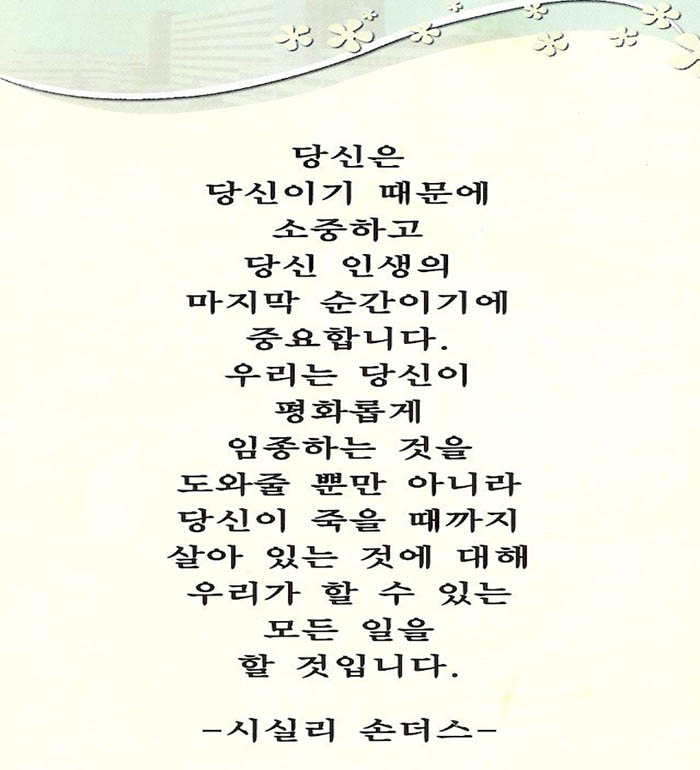 당신은
당신이기 때문에
소중하고
당신 인생의
마지막 순간이기에
중요합니다.
우리는 당신이
평화롭게
임종하는 것을
도와줄 뿐만 아니라
당신이 죽을 때까지
살아 있는 것에 대해
우리가 할 수 있는
모든 일을
할 것입니다.
-시실리 손더스-